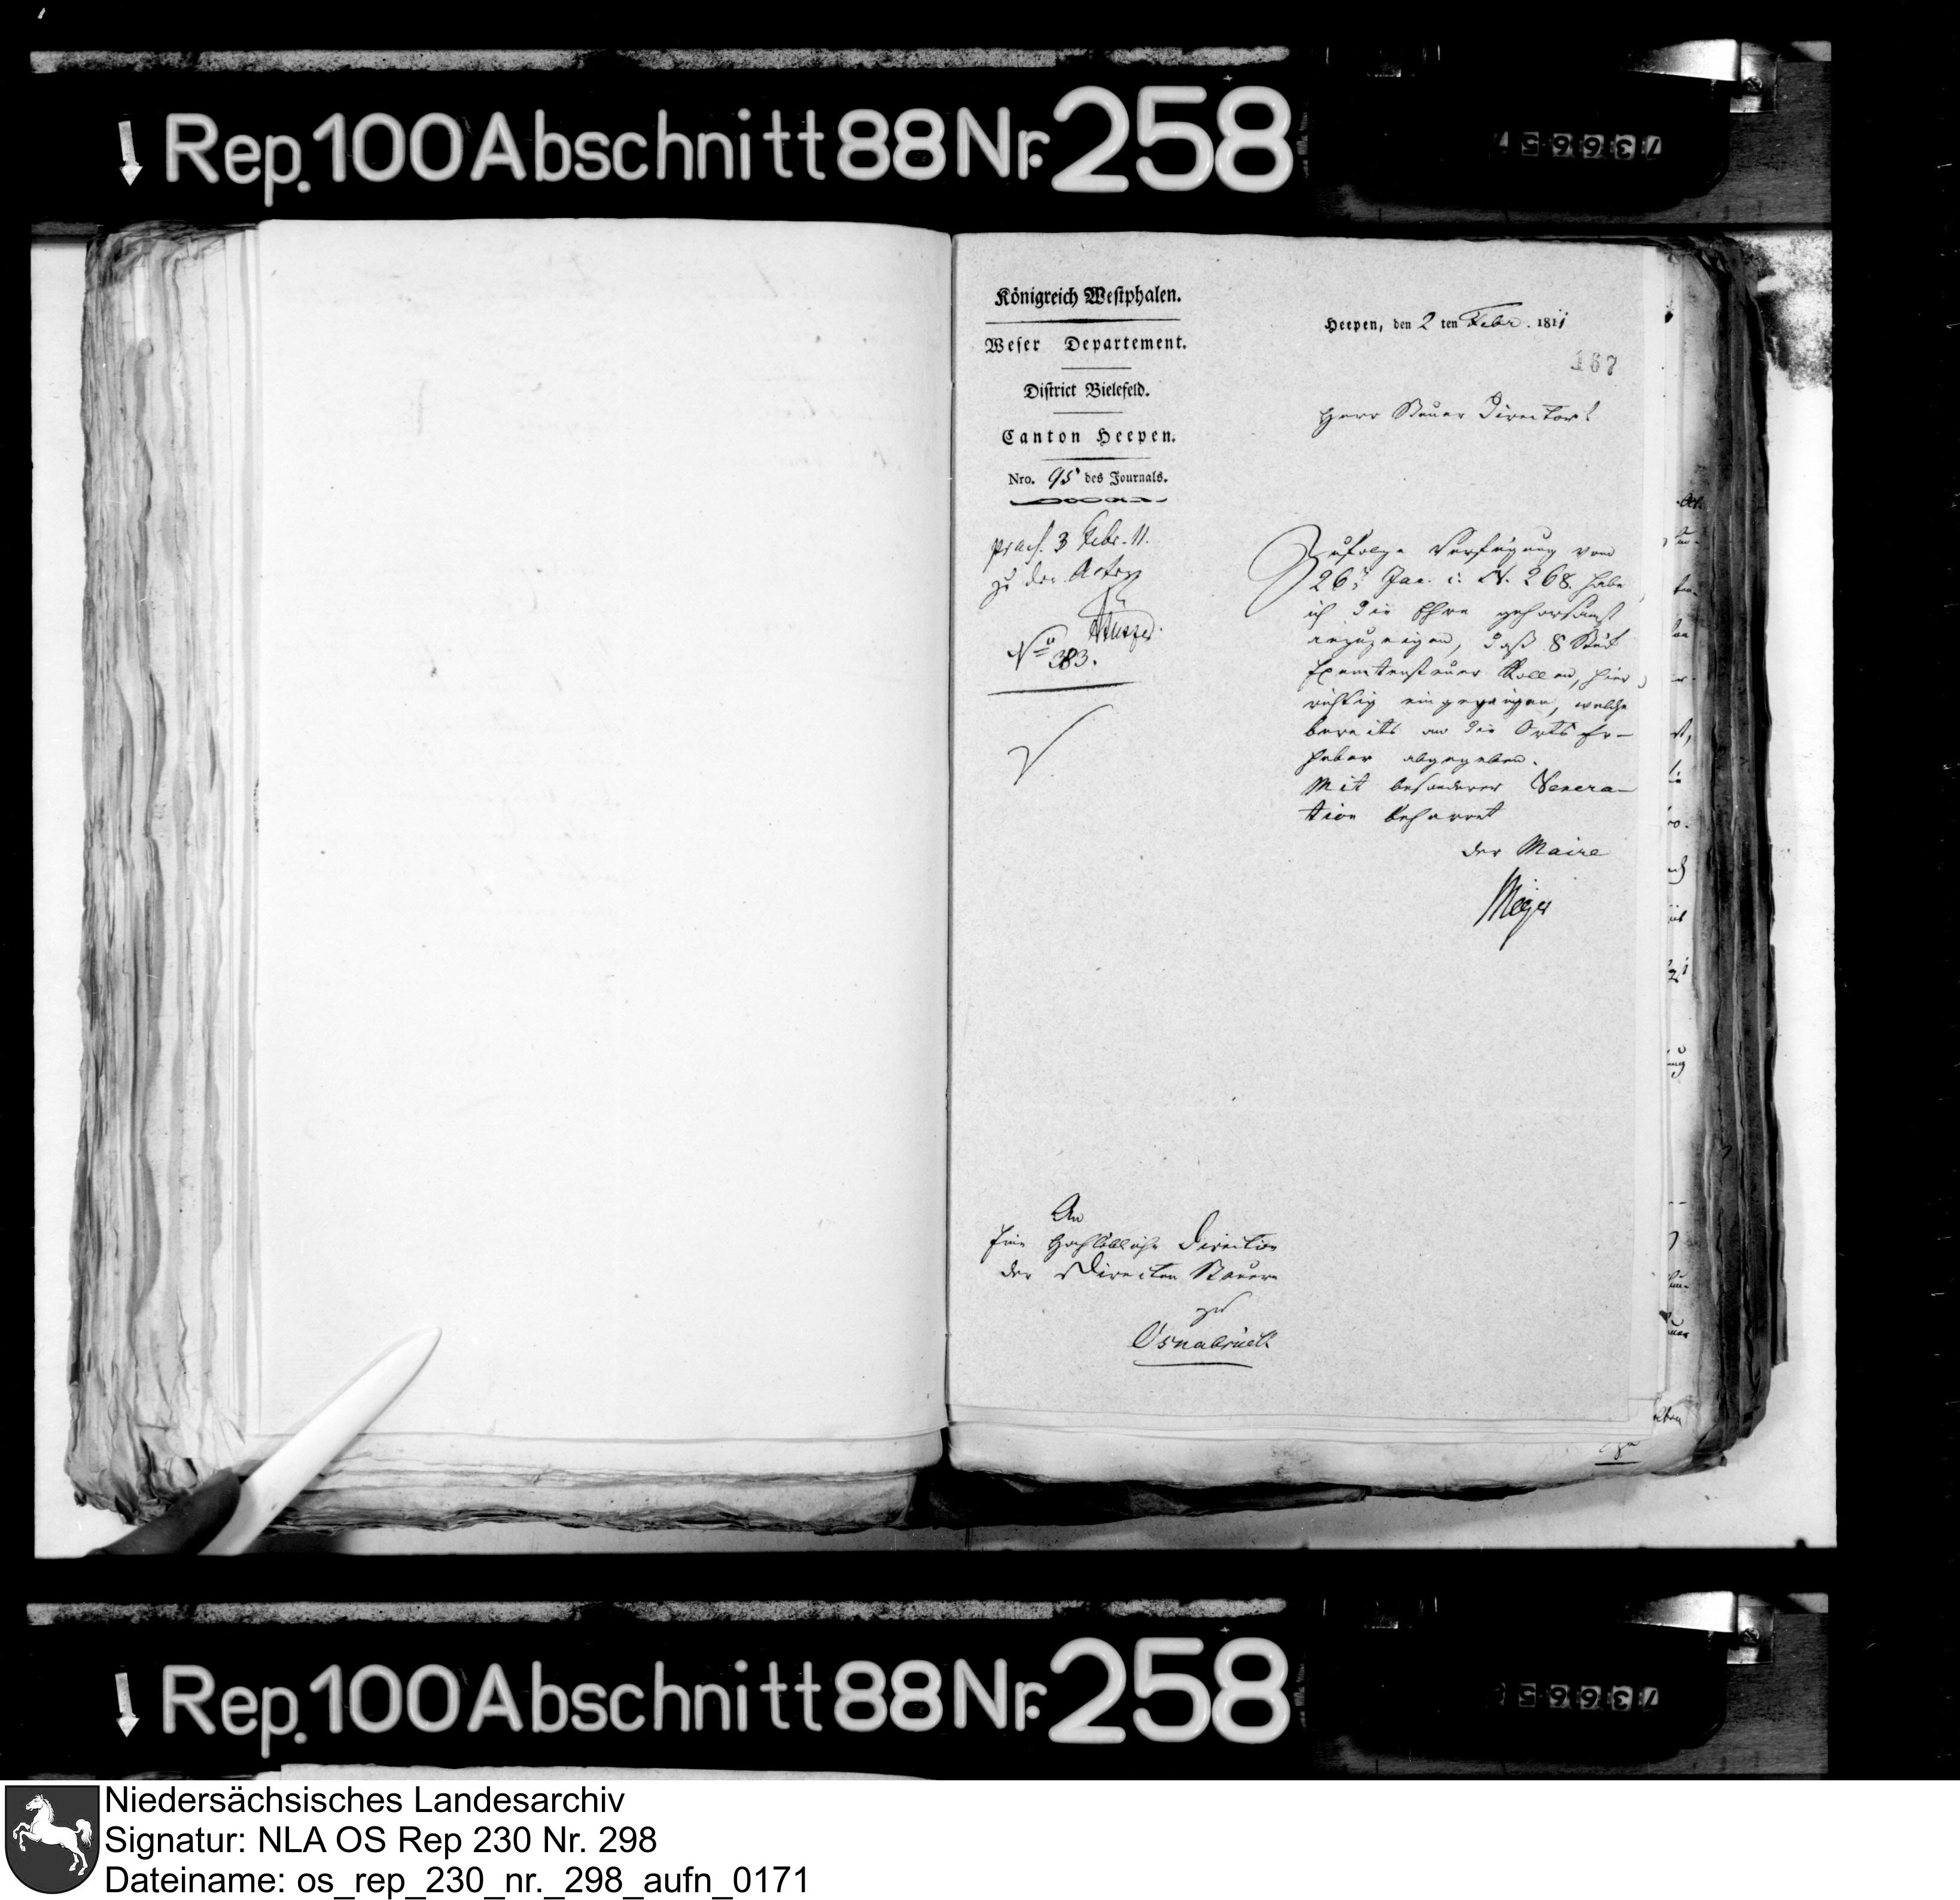 Rep. 100 Abschnitt 88 Nr. 258
73665
Königreich Westphalen.
Weser Departement.
District Bielefeld.
Canton Heepen.
Nro. 95 des Journals.
praes. 3 Febr. 11.
zu den Acten
No 383.
Heepen, den 2 ten Febr. 1811
167
Herr Steuer Director!
Zufolge Verfügung vom
26t Jan. c. N. 268. habe
ich die Ehre gehorsamst
anzuzeigen, daß 8 Stük
Exemtensteuer Rollen, hier
richtig eingegangen, welche
bereits an die Orts Er-
heber abgegeben.
Mit besonderer Venera-
tion beharret
der Maire
Meyer
An
Eine Hochlöbliche Direction
der Directen Steuern
zu
Osnabrück
Rep. 100 Abschnitt 88 Nr. 258
73665
Niedersächsisches Landesarchiv
Signatur: NLA OS Rep 230 Nr. 298
Dateiname: os_rep_230_nr._298_aufn_0171